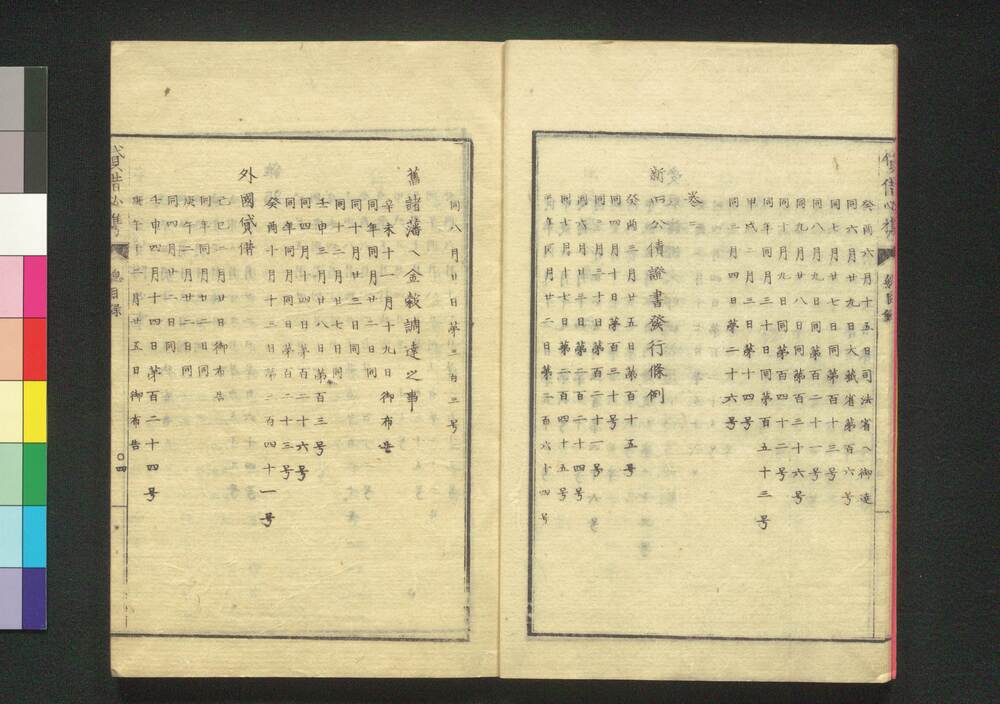 癸酉六月十五日司法省ヘ御達
同六月廿九日大蔵省第百六号
同七月廿七日同第百十三号
同八月九日同第百二十一号
同九月廿八日同第百三十六号
同十月九日同第百四十二号
同年同月三十日同第百五十三号
甲戌二月日第十四号
同三月四日第二十六号
巻三
新旧公債證書發行條例
癸酉三月廿五日第百十五号
同年四月十日第百三十号
同六月十四号
同十月十七日第二百四十五号
同年同月廿二日第三百六十四号
同八月廿日第三百三号
舊諸藩ヘ金穀調達之事
辛未十一月十九日御布告
同年同月廿二日同
同十月廿三日同
同十二月廿七日同
壬申三月廿八日第百三号
同四月十四日第百二十六号
同年同月同日第百二十三号
癸酉十月十三日第三百四十一号
外國貸借
己巳二月廿日御布告
同年同月廿日同
庚午二月廿二日同
同四月廿二日同
壬申四月十四日第百二十四号
庚午十二月廿五日御布告
貸借必携
總目録
〇四